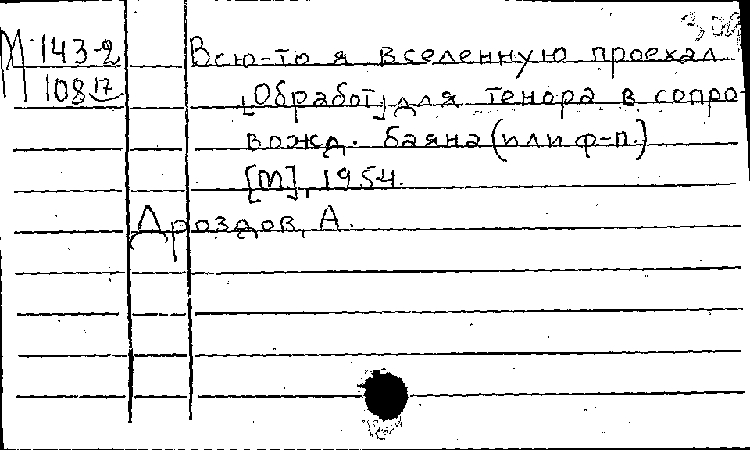 М 143-2 Всю-то я вселенную проехал
108 17 [Обработ] для тенора в сопро-
вожд. баяна (или ф-п.)
[М], 1954.
Дроздов, А.